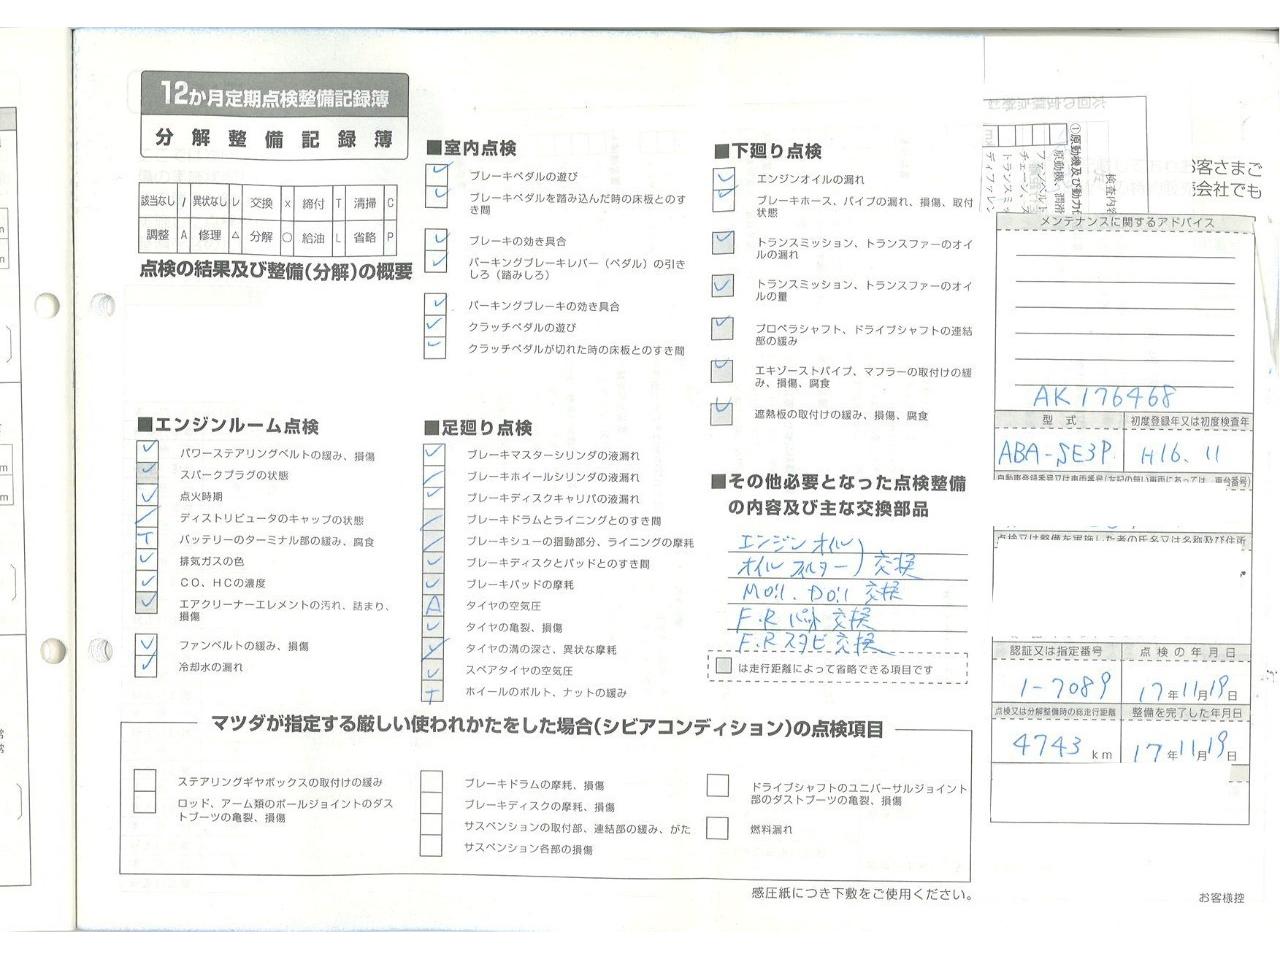 12か月定期点検整備記録簿
分解整備記録簿
該当なし / 異状なし レ 交換 × 締付 T 清掃 C
調整 A 修理 △ 分解 ○ 給油 L 省略 P
点検の結果及び整備(分解)の概要
■エンジンルーム点検
パワーステアリングベルトの緩み、損傷
スパークプラグの状態
点火時期
ディストリビュータのキャップの状態
バッテリーのターミナル部の緩み、腐食
排気ガスの色
CO、HCの濃度
エアクリーナーエレメントの汚れ、詰まり、
損傷
ファンベルトの緩み、損傷
冷却水の漏れ
■室内点検
ブレーキペダルの遊び
ブレーキペダルを踏み込んだ時の床板とのす
き間
ブレーキの効き具合
パーキングブレーキレバー（ペダル）の引き
しろ（踏みしろ）
パーキングブレーキの効き具合
クラッチペダルの遊び
クラッチペダルが切れた時の床板とのすき間
■足廻り点検
ブレーキマスターシリンダの液漏れ
ブレーキホイールシリンダの液漏れ
ブレーキディスクキャリパの液漏れ
ブレーキドラムとライニングとのすき間
ブレーキシューの摺動部分、ライニングの摩耗
ブレーキディスクとパッドとのすき間
ブレーキパッドの摩耗
タイヤの空気圧
タイヤの亀裂、損傷
タイヤの溝の深さ、異状な摩耗
スペアタイヤの空気圧
ホイールのボルト、ナットの緩み
■下廻り点検
エンジンオイルの漏れ
ブレーキホース、パイプの漏れ、損傷、取付
状態
トランスミッション、トランスファーのオイ
ルの漏れ
トランスミッション、トランスファーのオイ
ルの量
プロペラシャフト、ドライブシャフトの連結
部の緩み
エキゾーストパイプ、マフラーの取付けの緩
み、損傷、腐食
遮熱板の取付けの緩み、損傷、腐食
■その他必要となった点検整備
の内容及び主な交換部品
エンジンオイル
オイルフィルター 交換
Moil. Doil 交換
F.R パット 交換
F.R スタビ 交換
は走行距離によって省略できる項目です
マツダが指定する厳しい使われかたをした場合(シビアコンディション)の点検項目
ステアリングギヤボックスの取付けの緩み
ロッド、アーム類のボールジョイントのダス
トブーツの亀裂、損傷
ブレーキドラムの摩耗、損傷
ブレーキディスクの摩耗、損傷
サスペンションの取付部、連結部の緩み、がた
サスペンション各部の損傷
ドライブシャフトのユニバーサルジョイント
部のダストブーツの亀裂、損傷
燃料漏れ
感圧紙につき下敷をご使用ください。
お客さまご
会社でも
①原動機及び動力伝
検査内容
メンテナンスに関するアドバイス
AK 176468
型式 初度登録年又は初度検査年
ABA-SE3P H16. 11
点検又は整備を実施した者の氏名又は名称及び住所
認証又は指定番号 点検の年月日
1-7089 17年11月19日
点検又は分解整備時の総走行距離 整備を完了した年月日
4743 km 17年11月19日
お客様控